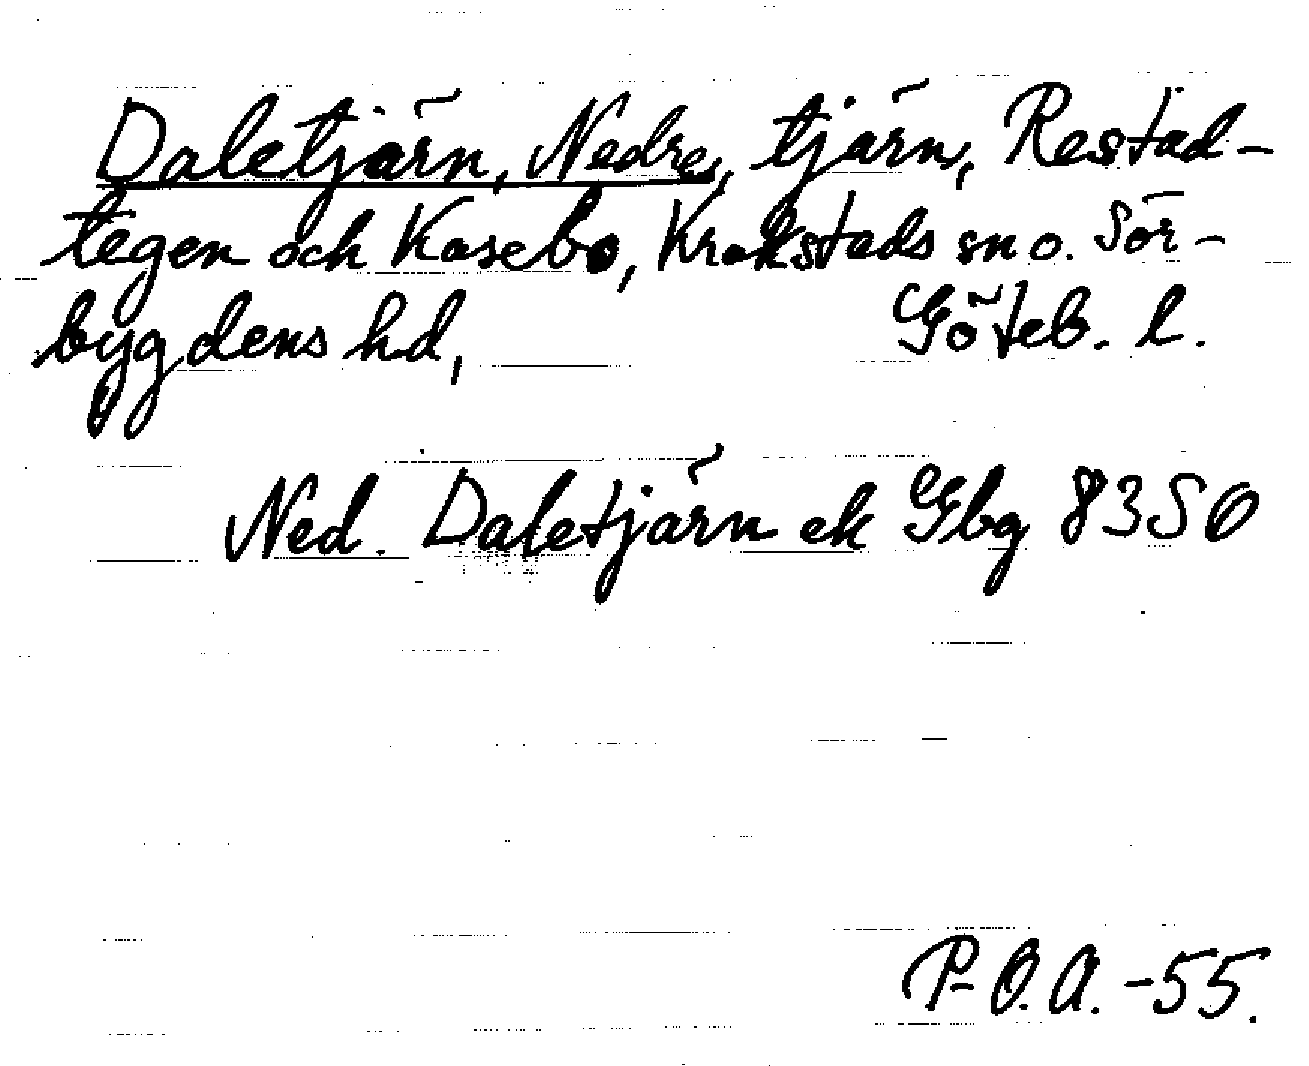 Daletjärn, Nedre, tjärn, Restad-
tegen och Kasebo, Krokstads sn o. Sör-
bygdens hd, Göteb. l.
Ned. Daletjärn ek Gbg 8350
P-O.A. -55.